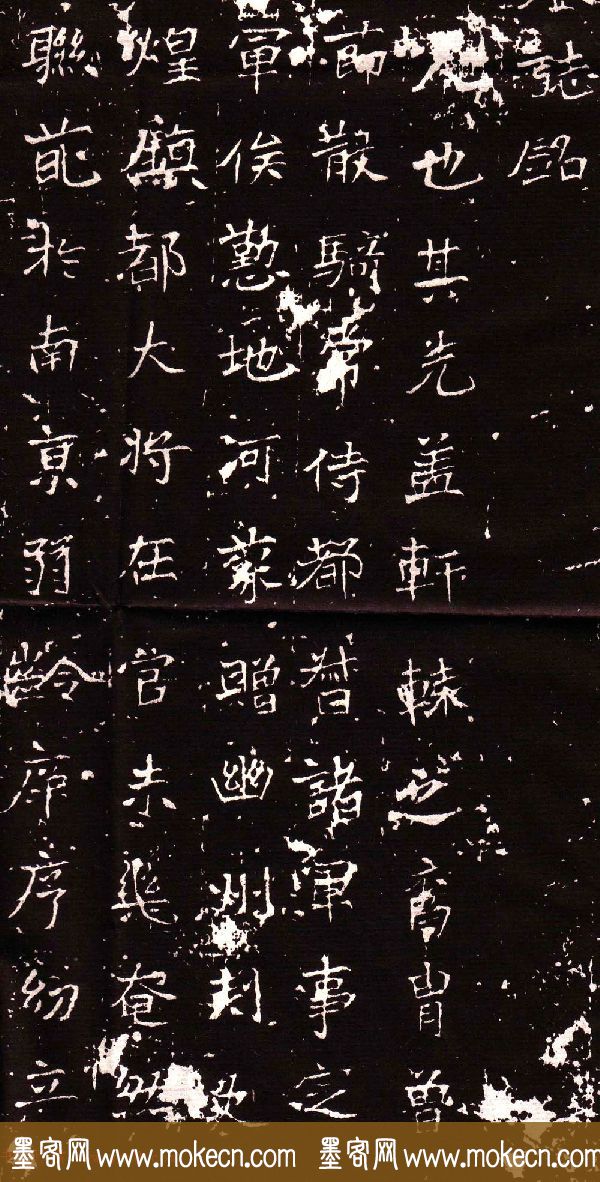 誌銘
也其先盖軒轅之裔胄曾
節散騎常侍都督諸軍事定
軍俟懃地河蒙贈幽州刺史
煌鎮都大将在官未幾奄然
聯葩於南京弱齡序幼立
墨客网 www.mokecn.com 墨客网 www.mokecn.com